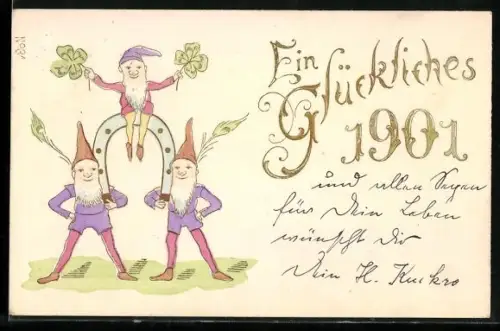 Ein
Glückliches
1901
und allen Segen
für Dein Leben
wünscht Dir
Dein H.